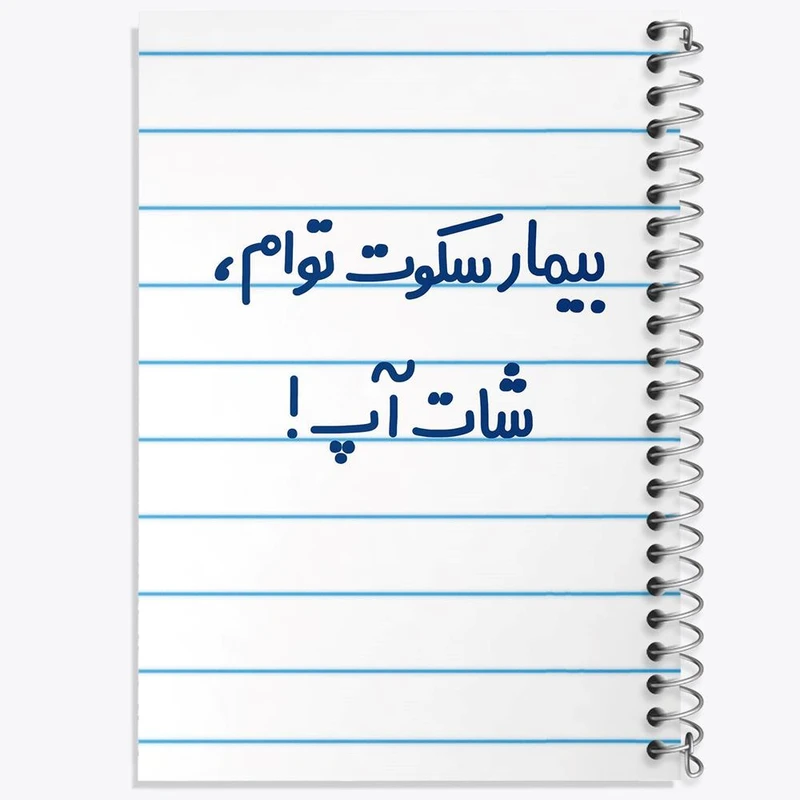 بیمار سکوت توام،
شات آپ!